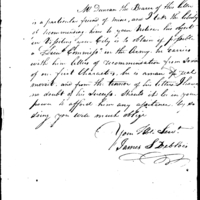 Mr Duncan the Bearer of this letter
is a particular friend of mine, and I take the liberty
of recommending him to your Notice. his object
in visiting your City is to obtain if possible
a Commission in the Army, he carries
with him letters of recommendation from some
of our first Characters, he is a man of real
merit, and from the tenor of his letters I have
no doubt of his success. Should it be in your
power to afford him any assistance by so
doing you will much oblige
Your Obt Servt
James S